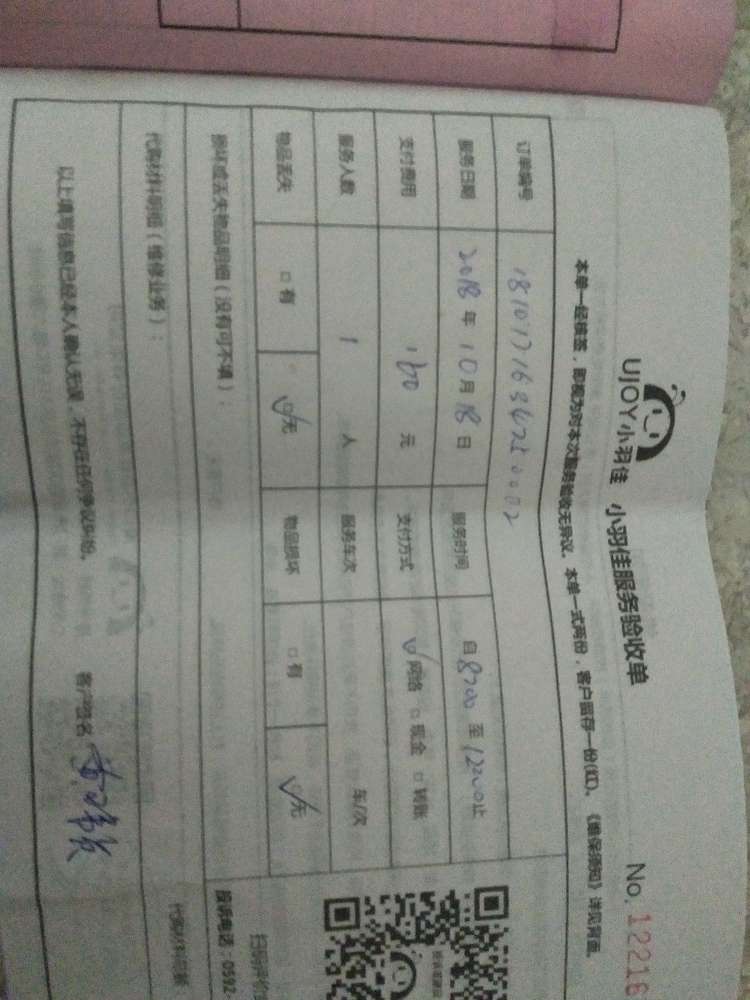 UJOY小羽佳 小羽佳服务验收单
No.12216
本单一经核签，即视为对本次服务验收无异议。本单一式两份，客户留存一份(红)。《维保须知》详见背面。
订单编号
服务日期 2018年10月18日 服务时间 自8:00至12:00止
支付费用 160元 支付方式 ☑网络 □现金 □转账
服务人数 1人 服务车次 车/次
物品丢失 □有 ☑无 物品损坏 □有 ☑无
损坏或丢失物品明细（没有可不填）：
代购材料明细（维修业务）：
代购材料
以上填写信息已经本人确认无误，不存在任何争议纠纷。 客户签名
扫码评价
投诉电话：0592-